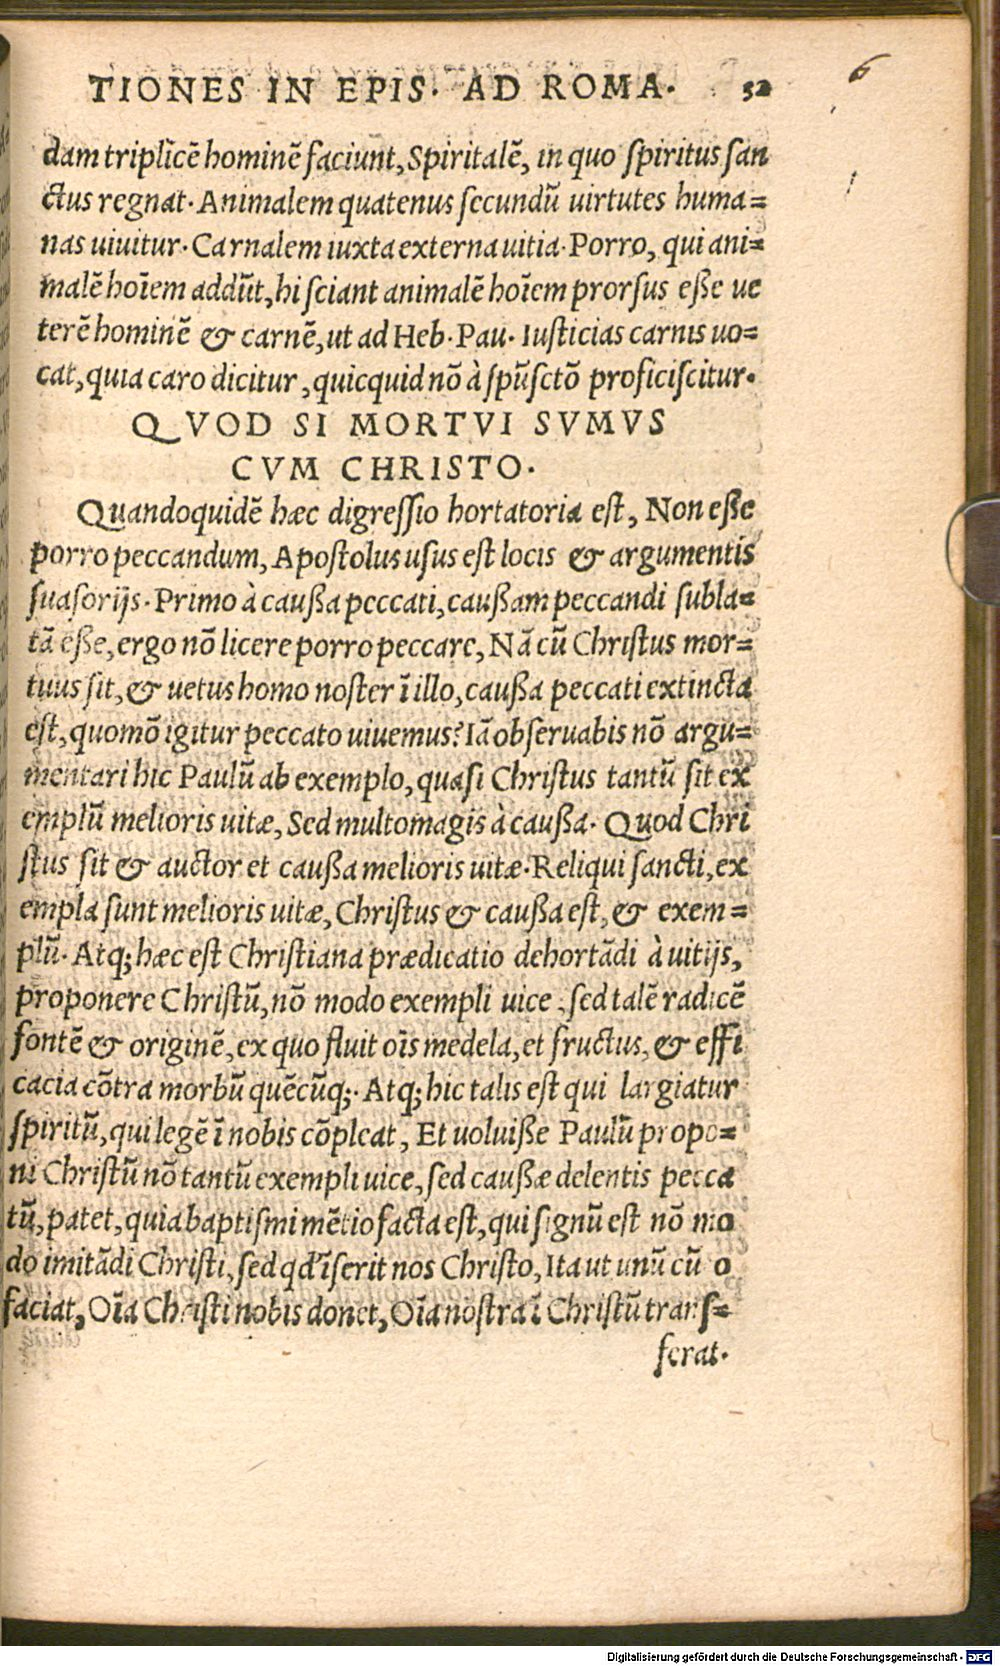 TIONES IN EPIS. AD ROMA. 32
6
dam triplicē hominē faciunt, Spiritalē, in quo spiritus san
ctus regnat. Animalem quatenus secundū uirtutes huma=
nas uiuitur. Carnalem iuxta externa uitia. Porro, qui ani=
malē hoīem addūt, hi sciant animalē hoīem prorsus esse ue
terē hominē & carnē, ut ad Heb. Pau. Iusticias carnis uo=
cat, quia caro dicitur, quicquid nō à spūsctō proficiscitur.
QVOD SI MORTVI SVMVS
CVM CHRISTO.
Quandoquidē hæc digressio hortatoria est, Non esse
porro peccandum, Apostolus usus est locis & argumentis
suasorijs. Primo à caussa peccati, caussam peccandi subla=
tā esse, ergo nō licere porro peccare, Nā cū Christus mor=
tuus sit, & uetus homo noster ī illo, caussa peccati extincta
est, quomō igitur peccato uiuemus? Iā obseruabis nō argu=
mentari hic Paulū ab exemplo, quasi Christus tantū sit ex
emplū melioris uitæ, Sed multomagis à caussa. Quod Chri
stus sit & auctor et caussa melioris uitæ. Reliqui sancti, ex
empla sunt melioris uitæ, Christus & caussa est, & exem=
plū. Atq; hæc est Christiana prædicatio dehortādi à uitijs,
proponere Christū, nō modo exempli uice, sed talē radicē
fontē & originē, ex quo fluit oīs medela, et fructus, & effi
cacia cōtra morbū quēcūq;. Atq; hic talis est qui largiatur
spiritū, qui legē ī nobis cōpleat, Et uoluisse Paulū propo=
ni Christū nō tantū exempli uice, sed caussæ delentis pecca
tū, patet, quia baptismi mētio facta est, qui signū est nō mo
do imitādi Christi, sed qd' īserit nos Christo, Ita ut unū cū o
faciat, Oīa Christi nobis donet, Oīa nostra ī Christū trans=
ferat.
Digitalisierung gefördert durch die Deutsche Forschungsgemeinschaft - DFG